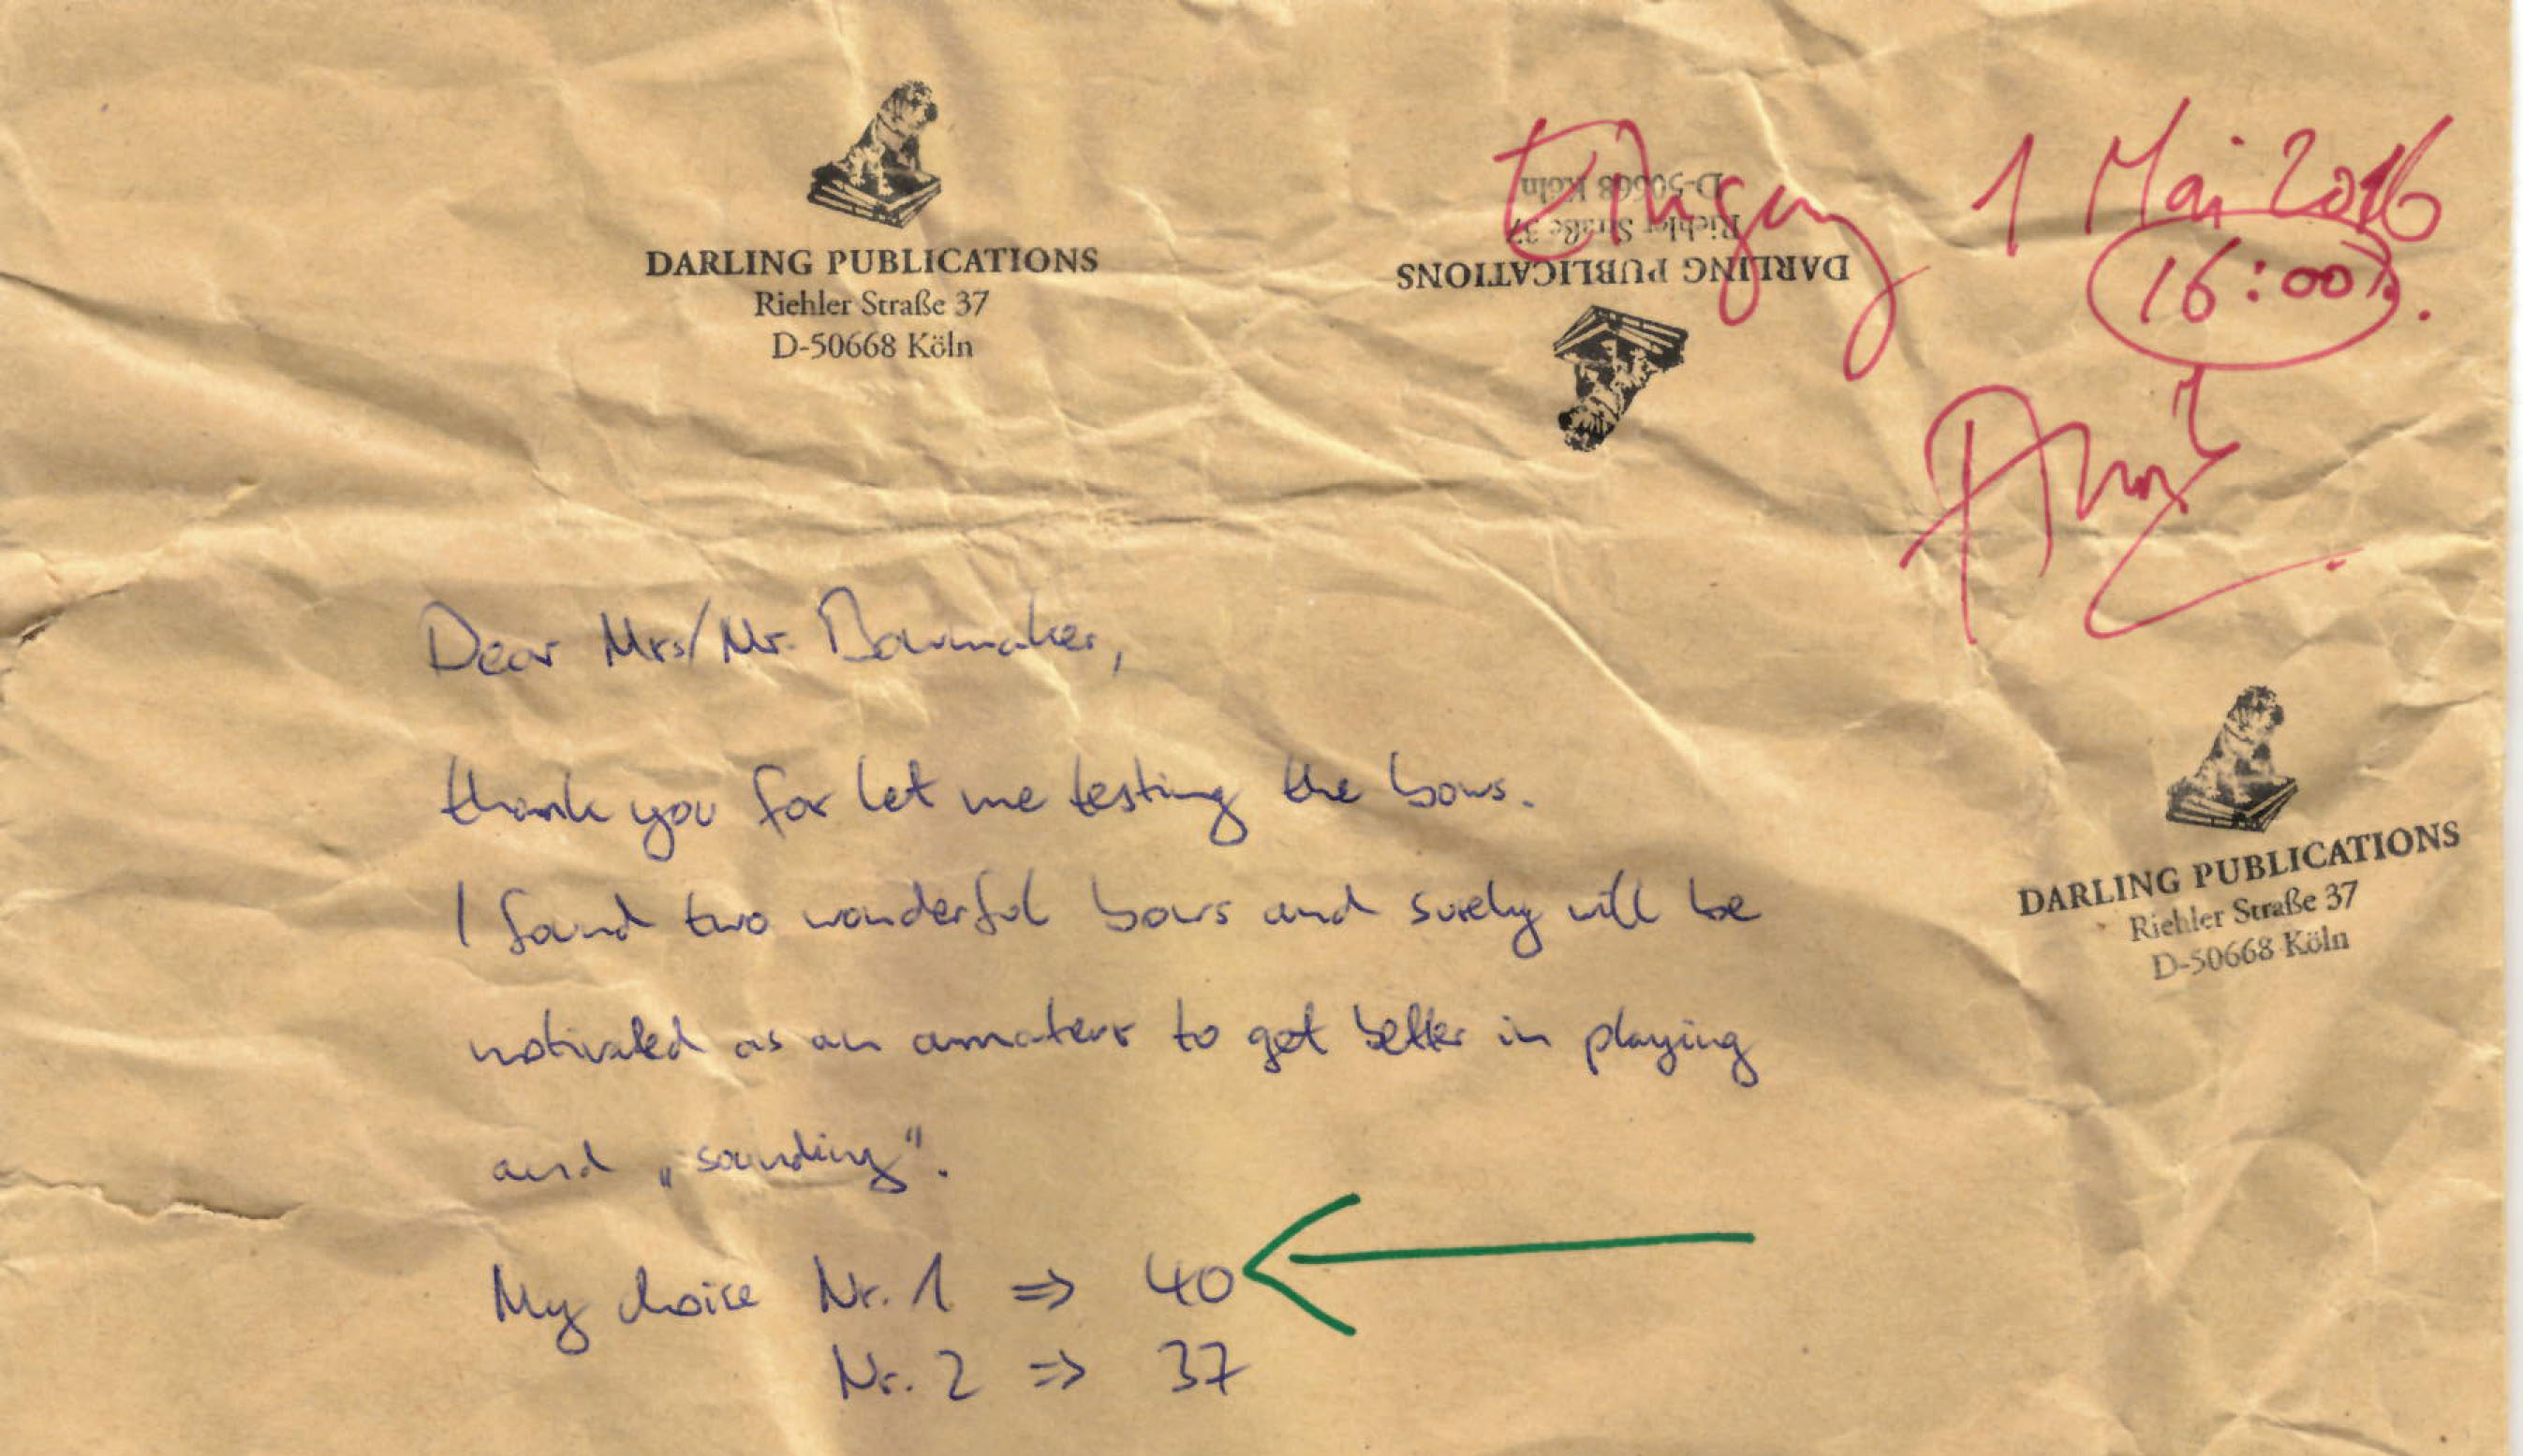 DARLING PUBLICATIONS
Riehler Straße 37
D-50668 Köln
DARLING PUBLICATIONS
Riehler Straße 37
D-50668 Köln
Eingang 1 Mai 2016
16:00
Dear Mrs/Mr. Bowmaker,
thank you for let me testing the bows.
I found two wonderful bows and surely will be
motivated as an amateur to get better in playing
and „sounding".
DARLING PUBLICATIONS
Riehler Straße 37
D-50668 Köln
My choice Nr. 1 ⇒ 40
Nr. 2 ⇒ 37